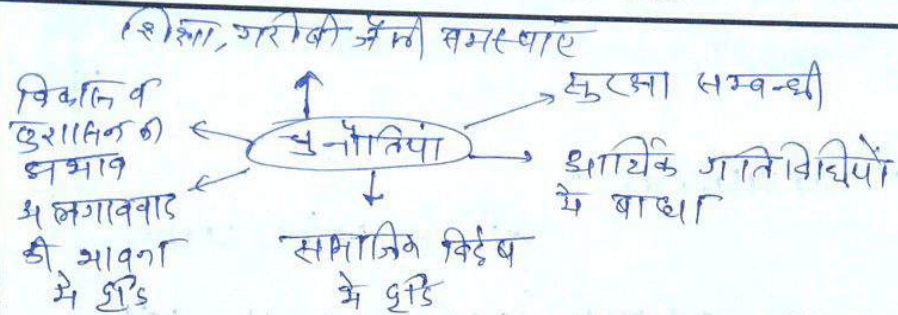 शिक्षा, गरीबी जैसी समस्याएं
विकास व
सुशासन की
अभाव
अलगाववाद
की भावना
में वृद्धि
चुनौतियां
सुरक्षा सम्बन्धी
आर्थिक गतिविधियों
में बाधा
सामाजिक विद्वेष
में वृद्धि